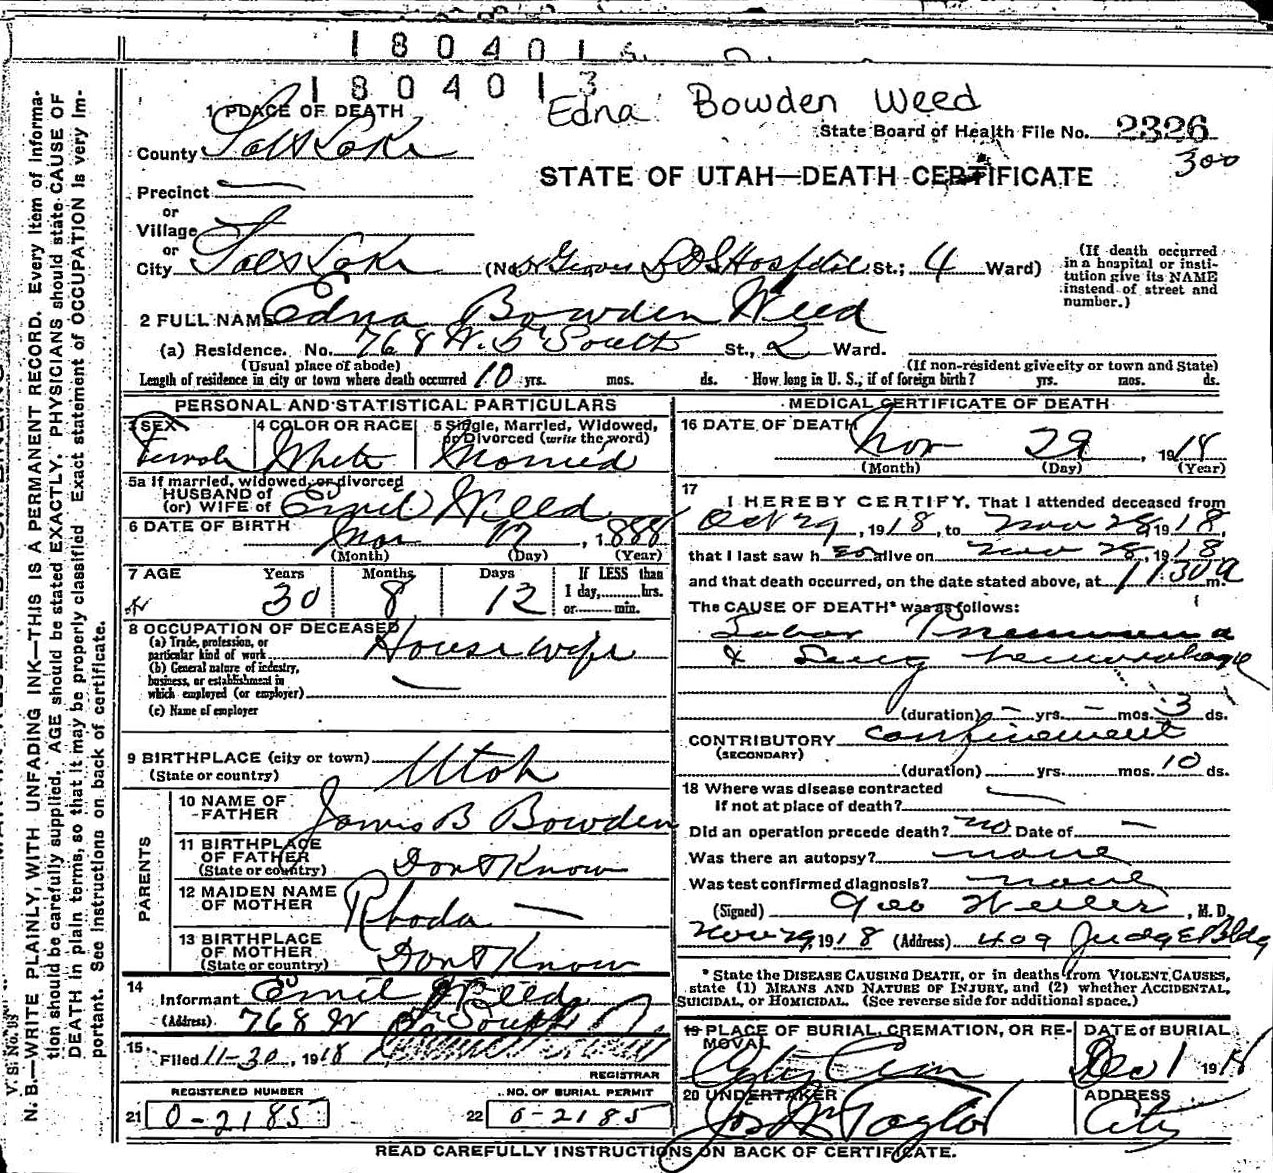 1 8 0 4 0 1
1 8 0 4 0 1 3
Edna Bowden Weed
1 PLACE OF DEATH
State Board of Health File No. 2326
300
County Salt Lake
STATE OF UTAH—DEATH CERTIFICATE
Precinct —
or
Village
or
City Salt Lake (No. Groves LDS Hospital St.; 4 Ward)
(If death occurred in a hospital or institution give its NAME instend of street and number.)
2 FULL NAME Edna Bowden Weed
(a) Residence. No. 768 W. South St., 2 Ward.
(Usual place of abode) (If non-resident give city or town and State)
Length of residence in city or town where death occurred 10 yrs. mos. ds. How long in U. S.; if of foreign birth? yrs. mos. ds.
PERSONAL AND STATISTICAL PARTICULARS
3 SEX 4 COLOR OR RACE 5 Single, Married, Widowed, or Divorced (write the word)
Female White Married
5a If married, widowed, or divorced
HUSBAND of
(or) WIFE of Emil Weed
6 DATE OF BIRTH Mar 17, 1888
(Month) (Day) (Year)
7 AGE Years Months Days If LESS than
30 8 12 1 day, hrs.
or min.
8 OCCUPATION OF DECEASED
(a) Trade, profession, or
particular kind of work Housewife
(b) General nature of industry,
business, or establishment in
which employed (or employer) —
(c) Name of employer
9 BIRTHPLACE (city or town)
(State or country) Utah
PARENTS
10 NAME OF FATHER James B Bowden
11 BIRTHPLACE OF FATHER
(State or country) Dont Know
12 MAIDEN NAME OF MOTHER Rhoda —
13 BIRTHPLACE OF MOTHER
(State or country) Dont Know
14
Informant Emil Weed
(Address) 768 W South
15
Filed 11-30, 1918
REGISTRAR
REGISTERED NUMBER NO. OF BURIAL PERMIT
21 0-2185 22 0-2185
MEDICAL CERTIFICATE OF DEATH
16 DATE OF DEATH Nov 29, 1918
(Month) (Day) (Year)
17
I HEREBY CERTIFY, That I attended deceased from
Oct 29, 1918, to Nov 28, 1918,
that I last saw her alive on Nov 28, 1918
and that death occurred, on the date stated above, at 1130a m.
The CAUSE OF DEATH* was as follows:
Lobar Pneumonia
& Lung hemorrhage
(duration) — yrs. — mos. 3 ds.
CONTRIBUTORY confinement
(SECONDARY)
(duration) yrs. mos. 10 ds.
18 Where was disease contracted
If not at place of death? —
Did an operation precede death? no Date of —
Was there an autopsy? none
Was test confirmed diagnosis? none
(Signed) Geo Weiler, M. D.
Nov 29, 1918 (Address) 409 Judge Bldg
* State the DISEASE CAUSING DEATH, or in deaths from VIOLENT CAUSES,
state (1) MEANS AND NATURE OF INJURY, and (2) whether ACCIDENTAL,
SUICIDAL, or HOMICIDAL. (See reverse side for additional space.)
19 PLACE OF BURIAL, CREMATION, OR REMOVAL DATE of BURIAL
City Cem Dec 1 1918
20 UNDERTAKER ADDRESS
Jos Wm Taylor City
READ CAREFULLY INSTRUCTIONS ON BACK OF CERTIFICATE.
V. S. No.
N. B.—WRITE PLAINLY, WITH UNFADING INK—THIS IS A PERMANENT RECORD. Every item of Informa-
tion should be carefully supplied. AGE should be stated EXACTLY. PHYSICIANS should state CAUSE OF
DEATH in plain terms, so that it may be properly classified. Exact statement of OCCUPATION is very im-
portant. See instructions on back of certificate.